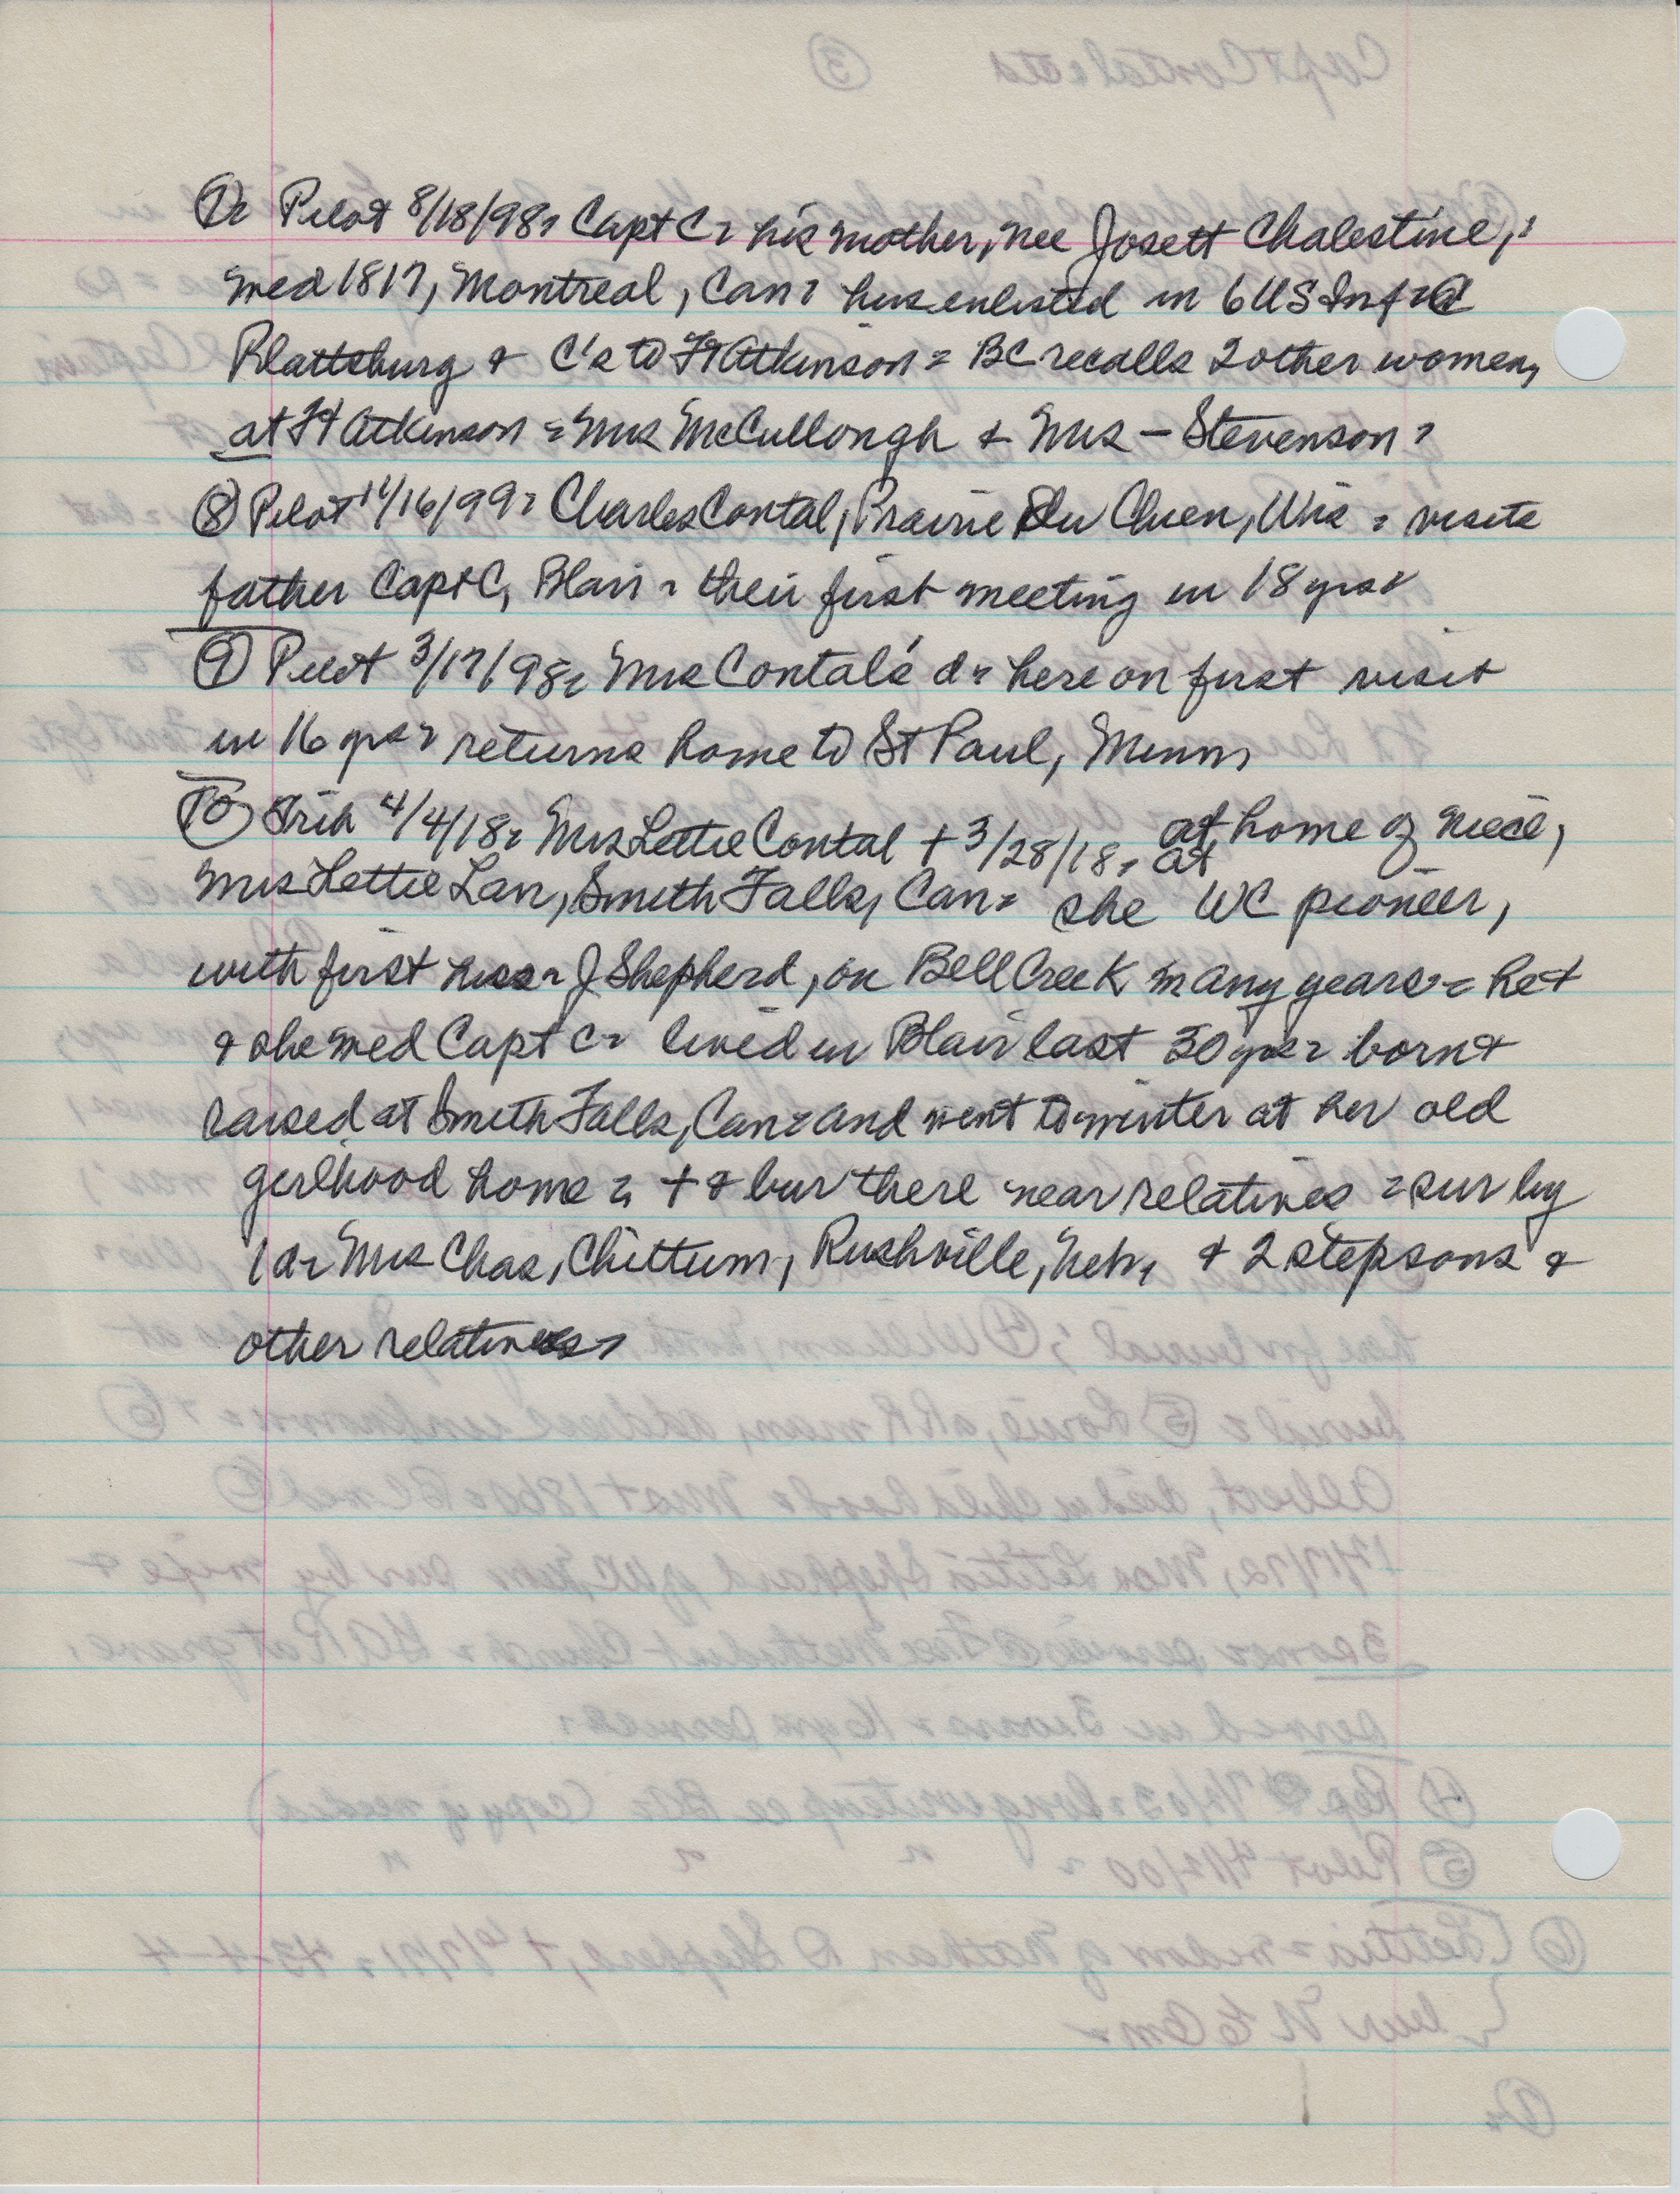 ⑦= Pilot 8/18/98= Capt C= his mother, nee Josett Chalestine,
med 1817, Montreal, Can= hus enlisted in 6 US Inf= @
Plattsburg & C's to Ft Atkinson = BC recalls 2 other women,
at Ft Atkinson = Mrs McCullough & Mrs — Stevenson=
⑧ Pilot 11/16/99= Charles Contal, Prairie Du Chien, Wis = visits
father Capt C, Blair = their first meeting in 18 yrs=
⑨ Pilot 3/17/98= Mrs Contal's d= here on first visit
in 16 yrs= returns home to St Paul, Minn,
⑩ Trib 4/4/18= Mrs Lettie Contal + 3/28/18, at at home of niece,
Mrs Lettie Lan, Smith Falls, Can= she WC pioneer,
with first hus= J Shepherd, on Bell Creek many years= he+
& she med Capt C= lived in Blair last 30 yrs= born &
raised at Smith Falls, Can= and went to winter at her old
girlhood home = + & bur there near relatives = sur by
1 d= Mrs Chas, Chittum, Rushville, Neb, & 2 stepsons &
other relatives=